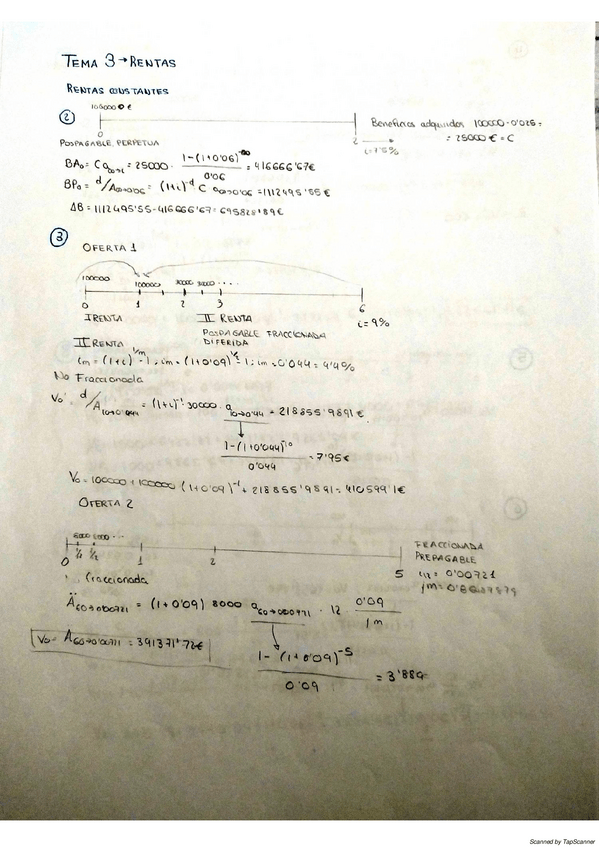 TEMA 3 → RENTAS
RENTAS CONSTANTES
②
0
2
Beneficios adquiridos 100000·0'025 =
= 25000€ = C
POSPAGABLE, PERPETUA
BA₀ = C a∞¬i = 25000 · 1-(1+0'06)^-∞ / 0'06 = 416666'67€
BP₀ = d/A∞¬0'06 = (1+i)^-d C a∞¬0'06 = 1112495'55€
ΔB = 1112495'55 - 416666'67 = 695828'89€
③
OFERTA 1
100000 100000 3000 3000 ....
0 1 2 3 6
i = 9%
I RENTA II RENTA
POSPAGABLE FRACCIONADA
DIFERIDA
II RENTA
im = (1+i)^1/m - 1 ; im = (1+0'09)^1/2 - 1 ; im = 0'044 = 4'4%
No Fraccionada
Vo d/A10¬0'044 = (1+i)^-1 · 30000 · a10¬0'44 = 218855'9891€
1-(1+0'044)^-10 / 0'044 = 7'95€
Vo = 100000 + 100000 (1+0'09)^-1 + 218855'9891 = 410599'1€
OFERTA 2
0 1/12 2/12 1 2 5
FRACCIONADA
PREPAGABLE
i12 = 0'00721
Fraccionada
Ä60¬0'00721 = (1+0'09) 8000 a60¬0'00721 · 12 · 0'09 / jm
Vo = A60¬0'00721 = 391371'72€
1-(1+0'09)^-5 / 0'09 = 3'889
Scanned by TapScanner